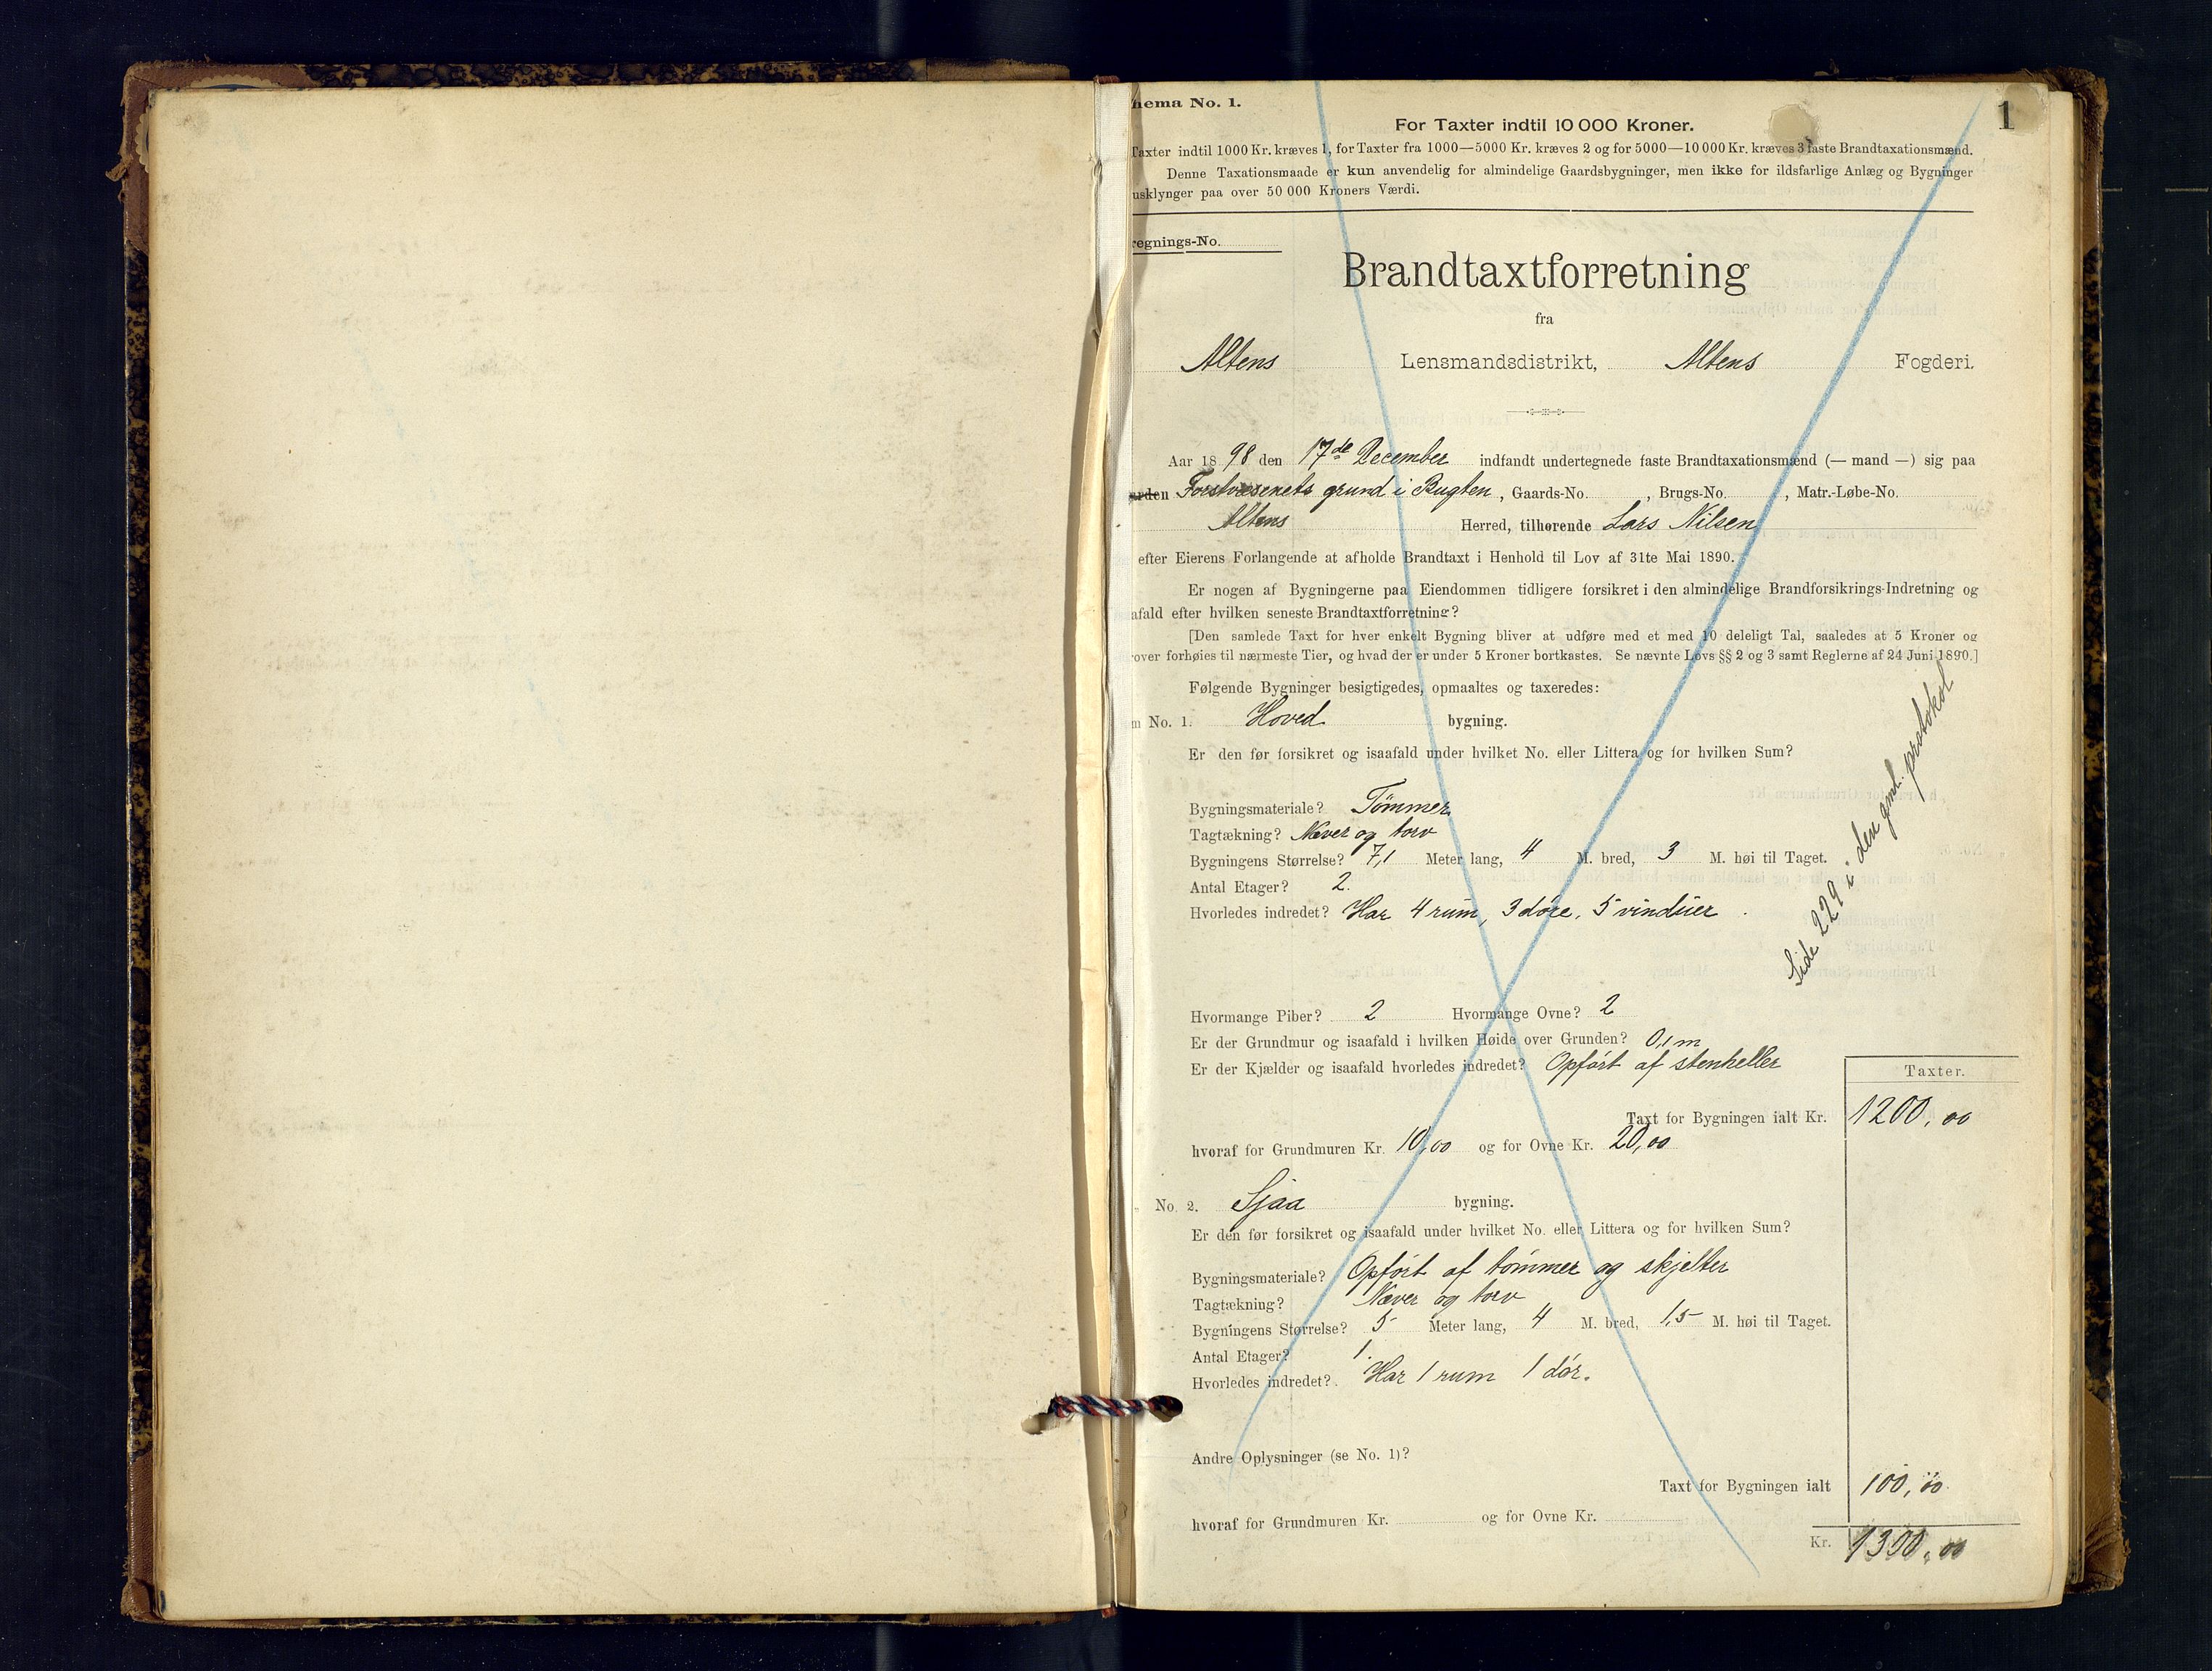 hema No. 1.
1
For Taxter indtil 10 000 Kroner.
Taxter indtil 1000 Kr. kræves 1, for Taxter fra 1000—5000 Kr. kræves 2 og for 5000—10 000 Kr. kræves 3 faste Brandtaxationsmænd.
Denne Taxationsmaade er kun anvendelig for almindelige Gaardsbygninger, men ikke for ildsfarlige Anlæg og Bygninger
usklynger paa over 50 000 Kroners Værdi.
regnings-No.
Brandtaxtforretning
fra
Altens Lensmandsdistrikt, Altens Fogderi.
Aar 1898 den 17de December indfandt undertegnede faste Brandtaxationsmænd (— mand —) sig paa
arden Forstvæsenets grund i Bugten, Gaards-No. , Brugs-No. , Matr.-Løbe-No.
Altens Herred, tilhørende Lars Nilsen
efter Eierens Forlangende at afholde Brandtaxt i Henhold til Lov af 31te Mai 1890.
Er nogen af Bygningerne paa Eiendommen tidligere forsikret i den almindelige Brandforsikrings-Indretning og
afald efter hvilken seneste Brandtaxtforretning?
[Den samlede Taxt for hver enkelt Bygning bliver at udføre med et med 10 deleligt Tal, saaledes at 5 Kroner og
over forhøies til nærmeste Tier, og hvad der er under 5 Kroner bortkastes. Se nævnte Lovs §§ 2 og 3 samt Reglerne af 24 Juni 1890.]
Følgende Bygninger besigtigedes, opmaaltes og taxeredes:
m No. 1. Hoved bygning.
Er den før forsikret og isaafald under hvilket No. eller Littera og for hvilken Sum?
Side 229 i den gml. protokol
Bygningsmateriale? Tömmer
Tagtækning? Næver og torv
Bygningens Størrelse? 7,1 Meter lang, 4 M. bred, 3 M. høi til Taget.
Antal Etager? 2.
Hvorledes indredet? Har 4 rum, 3 döre, 5 vinduer.
Hvormange Piber? 2 Hvormange Ovne? 2
Er der Grundmur og isaafald i hvilken Høide over Grunden? 0,1 m
Er der Kjælder og isaafald hvorledes indredet? Opfört af stenheller
Taxter.
Taxt for Bygningen ialt Kr. 1200,00
hvoraf for Grundmuren Kr. 10,00 og for Ovne Kr. 20,00
No. 2. Sjaa bygning.
Er den før forsikret og isaafald under hvilket No. eller Littera og for hvilken Sum?
Bygningsmateriale? Opfört af tömmer og skjelter
Tagtækning? Næver og torv
Bygningens Størrelse? 5 Meter lang, 4 M. bred, 1,5 M. høi til Taget.
Antal Etager? 1.
Hvorledes indredet? Har 1 rum 1 dör.
Andre Oplysninger (se No. 1)?
Taxt for Bygningen ialt 100,00
hvoraf for Grundmuren Kr. og for Ovne Kr.
Kr. 1300,00